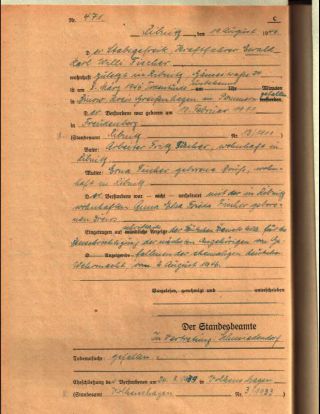 Nr. 471 C
Ribnitz, den 19. August 1946
Der Stabsgefreite, Kraftfahrer Ewald
Karl Willi Fischer
wohnhaft zuletzt in Ribnitz
ist am 3. März 1945 Uhr Minuten
in Kreis Greifenhagen in Pommern gefallen verstorben.
D er Verstorbene war geboren am 11. Februar 1911
in
(Standesamt Ribnitz Nr. 13/1911)
Vater: Arbeiter Fritz Fischer, wohnhaft in
Ribnitz
Mutter: Erna Fischer geborene wohn-
haft in Ribnitz
D er Verstorbene war — nicht — verheiratet mit der in Ribnitz
wohnhaften Anna Elsa Frieda Fischer gebore-
nen
Eingetragen auf mündliche schriftliche Anzeige der Deutschen Dienststelle für die
Benachrichtigung der nächsten Angehörigen von Ge-
D Anzeigende fallenen der ehemaligen deutschen
Wehrmacht, vom 6. August 1946.
Vorgelesen, genehmigt und unterschrieben
Der Standesbeamte
In Vertretung
Todesursache: gefallen
Eheschließung de Verstorbenen am 1939 in Volkenshagen
(Standesamt Volkenshagen Nr. 3/1939)